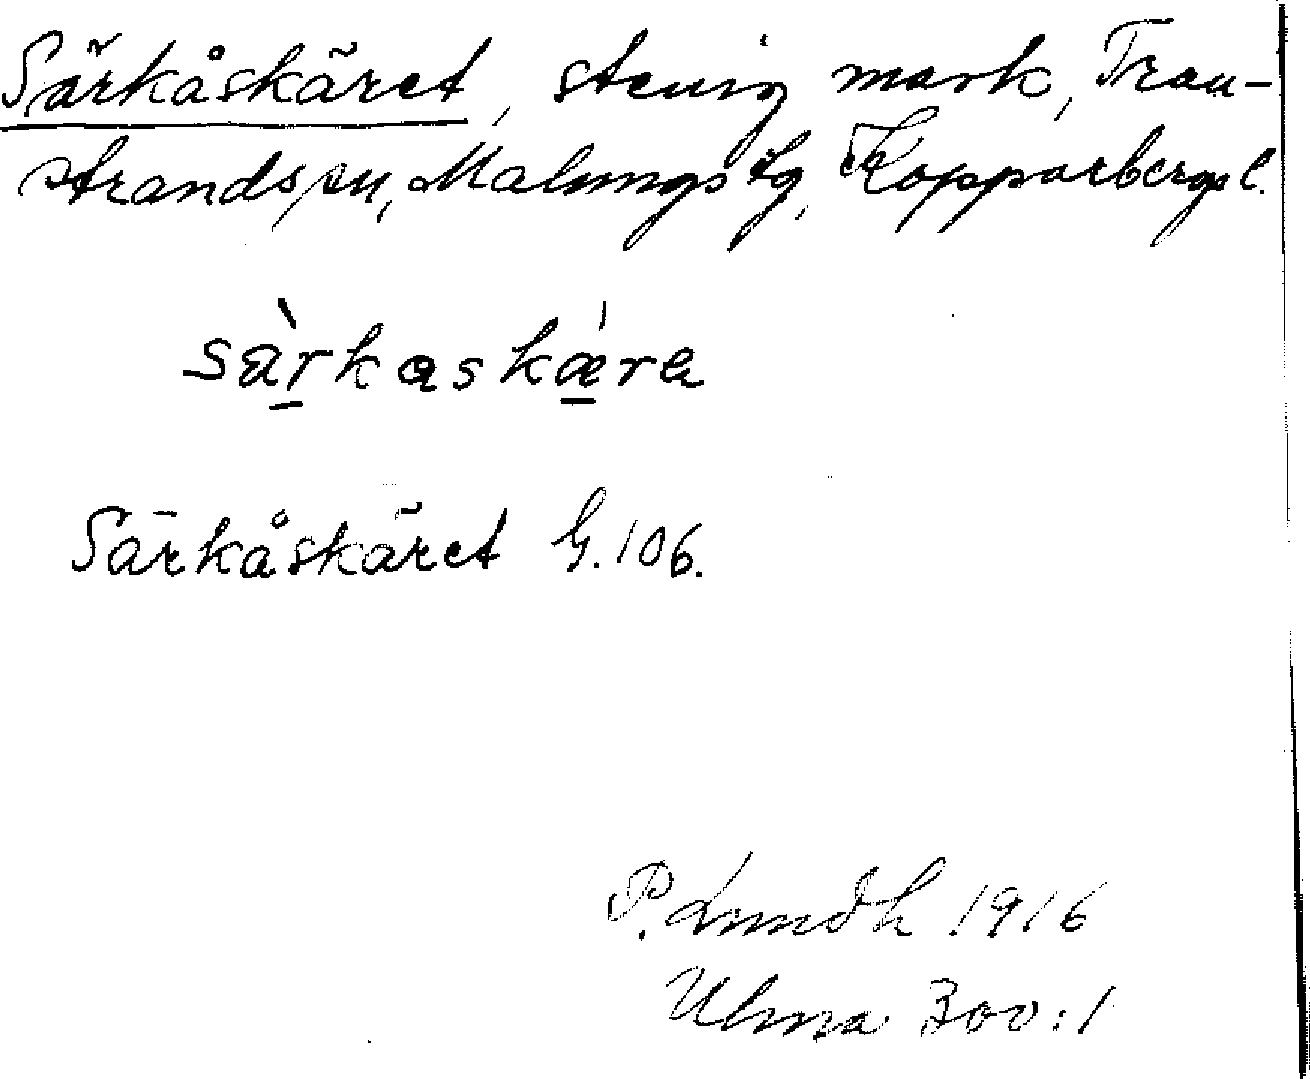 Särkåskäret, stenig mark, Tran-
strands sn, Malungs tg, Kopparbergs l.
sàrkaskǽra
Särkåskäret G.106.
P. Lundh 1916
Ulma 300:1